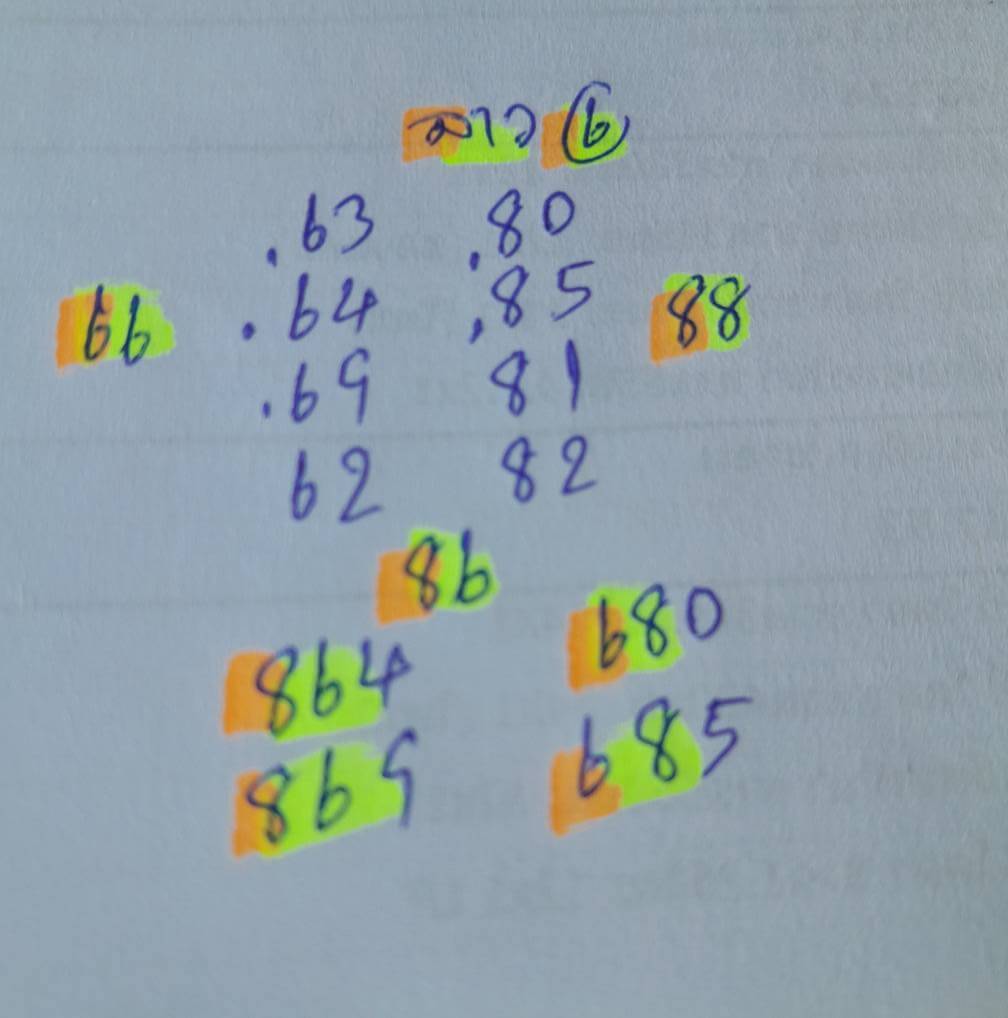 ลาว 6
.63 .80
66 .64 .85 88
.69 81
62 82
86
864 680
869 685